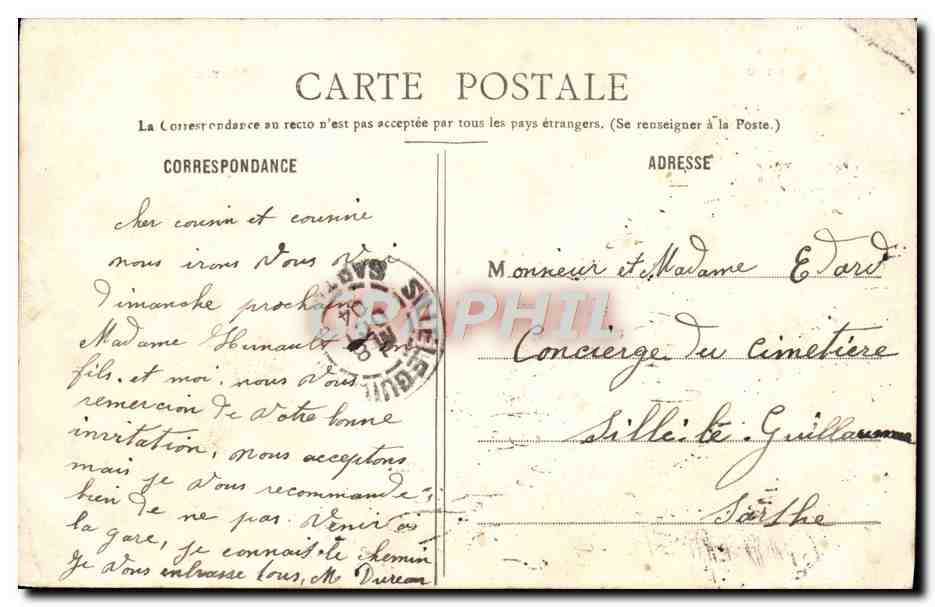 CARTE POSTALE
La Correspondance au recto n'est pas acceptée par tous les pays étrangers. (Se renseigner à la Poste.)
CORRESPONDANCE
cher cousin et cousine
nous irons vous voi
Dimanche prochain
Madame Hunault
fils, et moi, nous vous
remercion de votre bonne
invitation, nous acceptons
mais je vous recommande
bien de ne pas venir à
la gare, je connait le chemin
je vous embrasse tous, M Dureau
ADRESSE
Monsieur et Madame Edard
Concierge du cimetière
Sillé-le-Guillaume
Sarthe
SILLE LE GUIL
SART
04
CARAPHIL